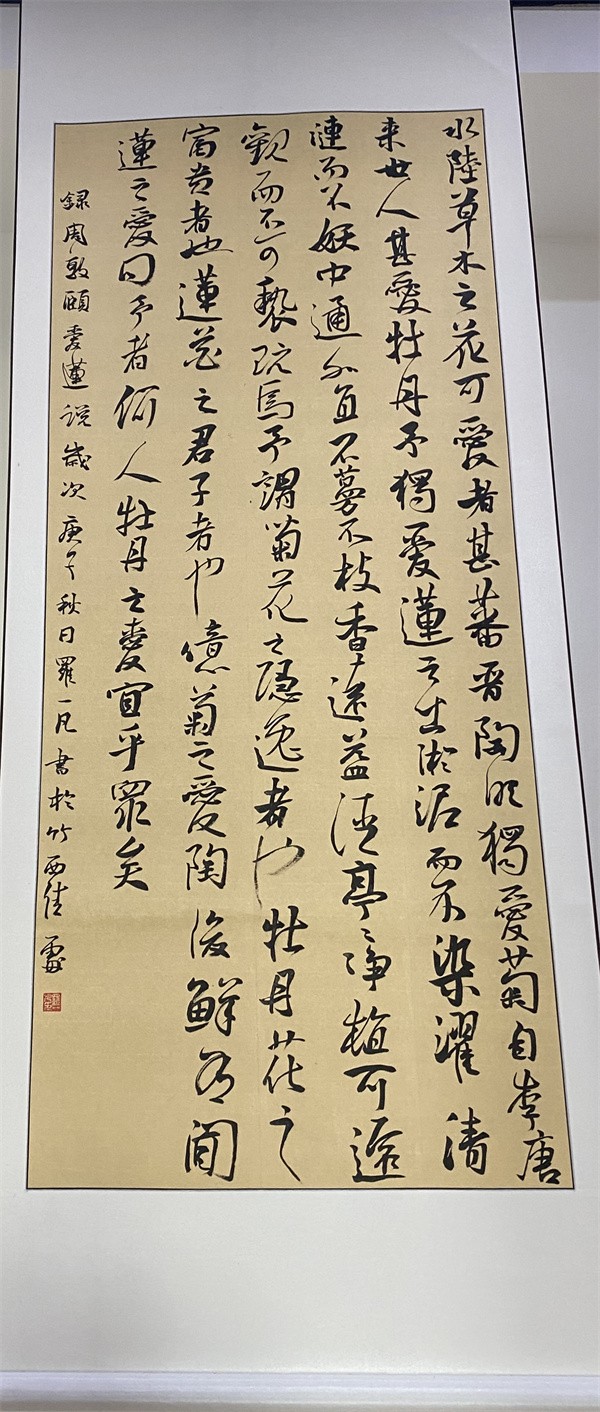 水陸草木之花可愛者甚蕃晋陶明獨愛菊自李唐
来世人甚愛牡丹予獨愛蓮之出淤泥而不染濯清
漣而不妖中通外直不蔓不枝香遠益清亭亭净植可遠
觀而不可褻玩焉予謂菊花之隱逸者也牡丹花之
富貴者也蓮花之君子者也億菊之愛陶後鮮有聞
蓮之愛同予者何人牡丹之愛宜乎眾矣
錄周敦頤愛蓮説歲次庚子秋日羅一凡書於竹西佳處